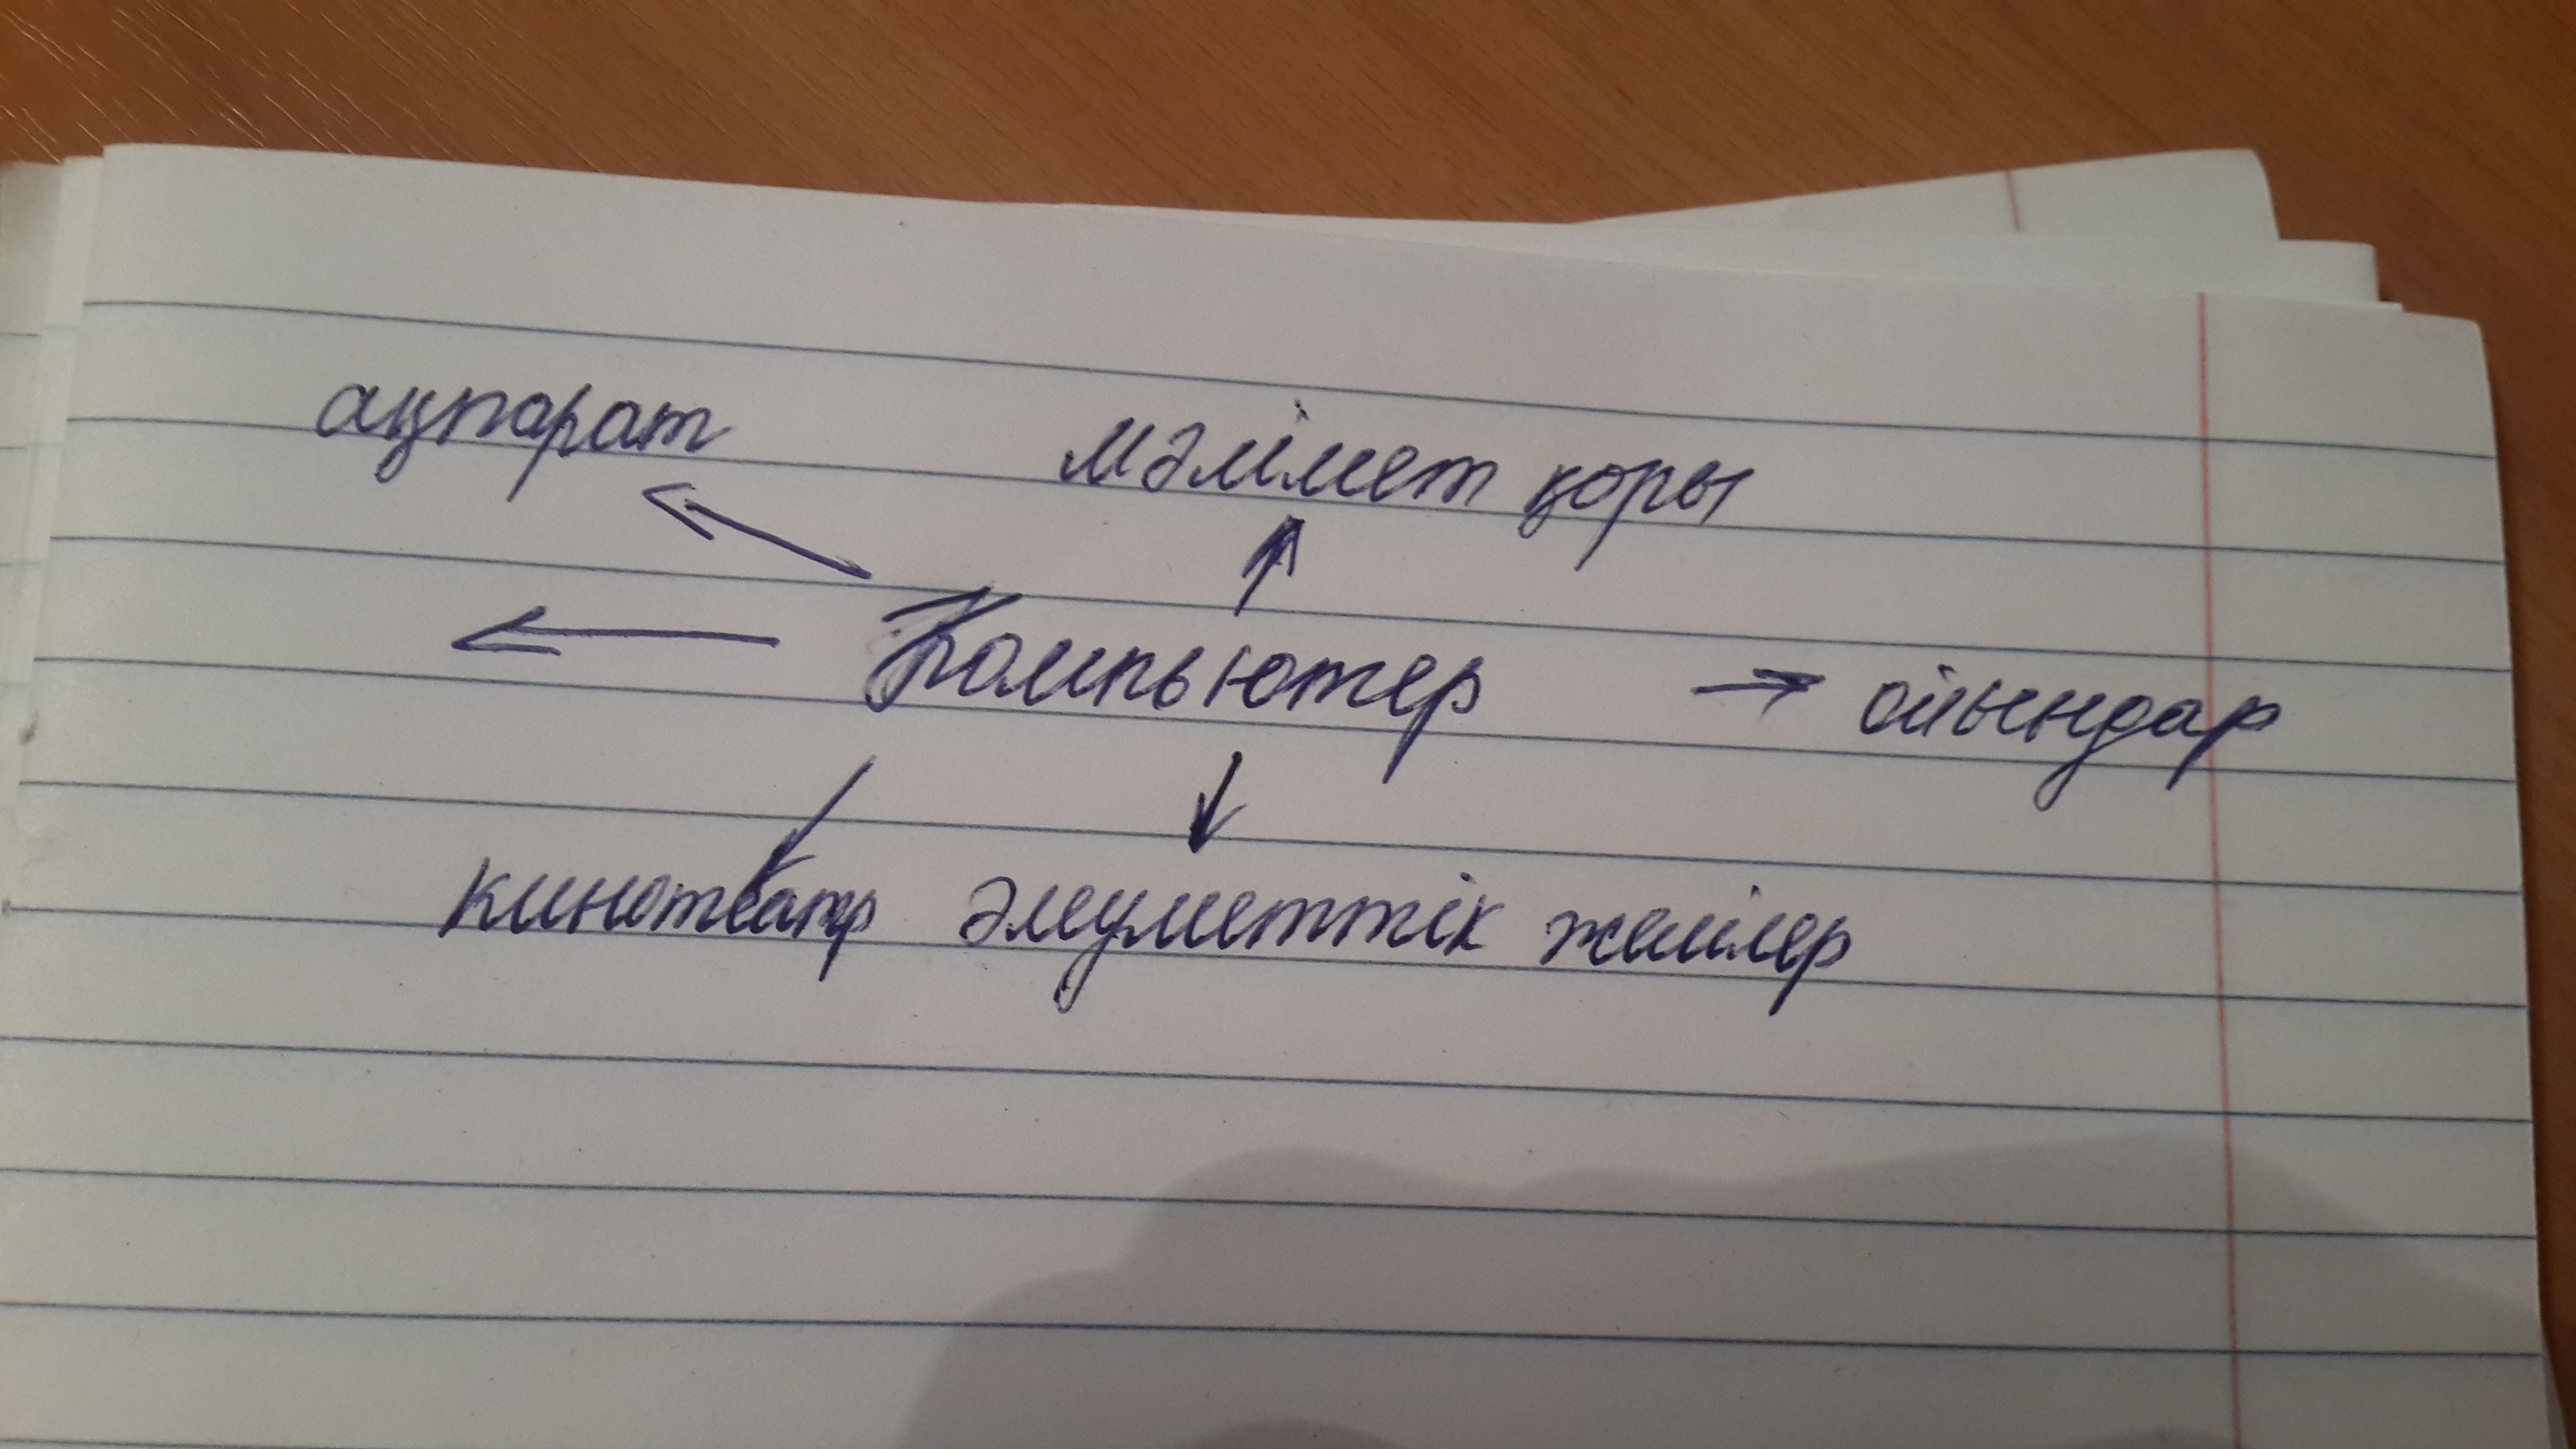 ақпарат
мәлімет қоры
Компьютер → ойындар
кинотеатр әлеуметтік желілер